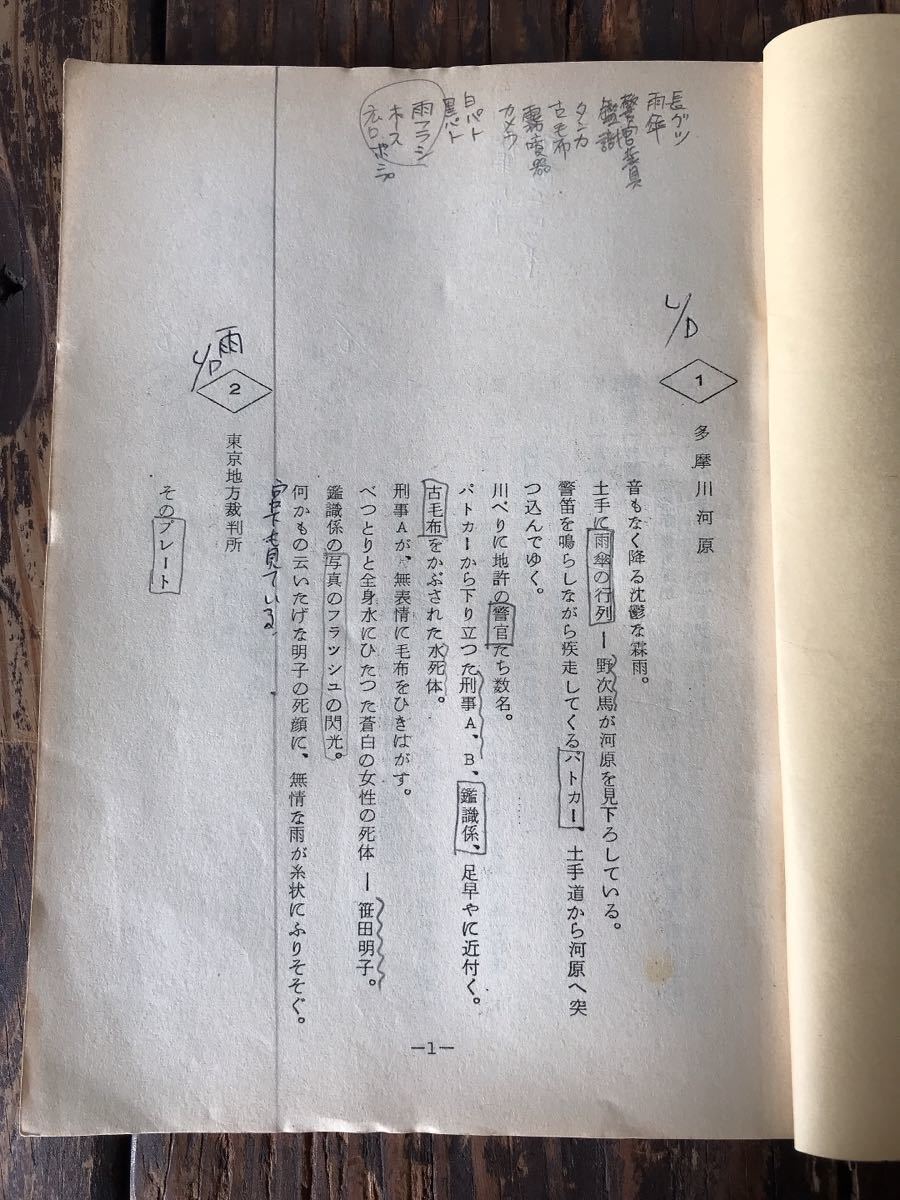 長グツ
雨傘
警官
鑑識
タンカ
古毛布
霧噴器
カメラ
白パト
黒パト
雨フラシ
ホース
L/D
1
多摩川河原
音もなく降る沈鬱な霖雨。
土手に雨傘の行列ー野次馬が河原を見下ろしている。
警笛を鳴らしながら疾走してくるパトカー、土手道から河原へ突
つ込んでゆく。
川べりに地許の警官たち数名。
パトカーから下り立つた刑事A、B、鑑識係、足早やに近付く。
古毛布をかぶされた水死体。
刑事Aが、無表情に毛布をひきはがす。
べつとりと全身水にひたつた蒼白の女性の死体ー笹田明子。
鑑識係の写真のフラッシュの閃光。
何かもの云いたげな明子の死顔に、無情な雨が糸状にふりそそぐ。
見ている
雨
L/D
2
東京地方裁判所
そのプレート
—1—